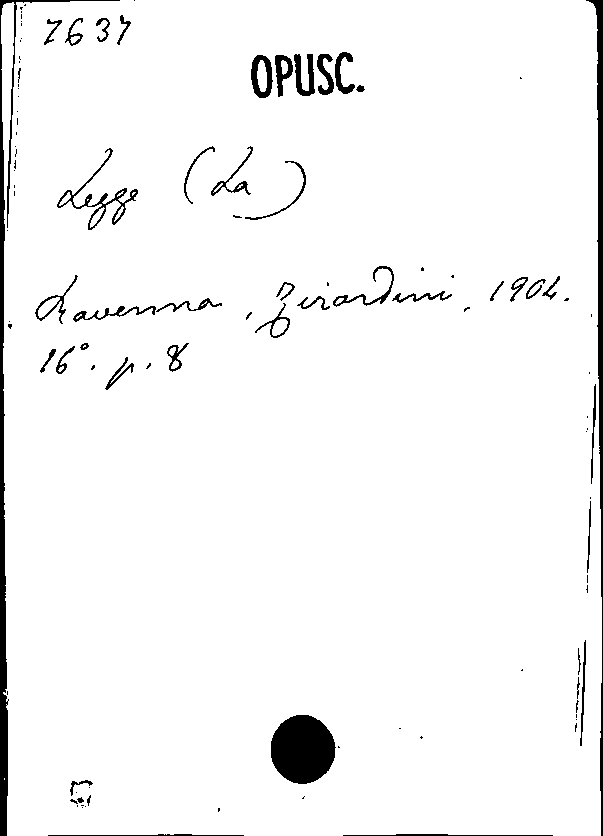 7637
OPUSC.
Legge (La)
Ravenna, Zirardini, 1904.
16°. p. 8